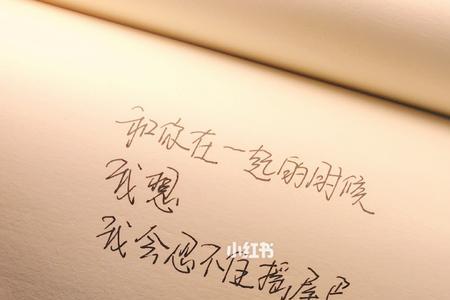 和你在一起的时候
我想
我会忍不住摇尾巴
小红书